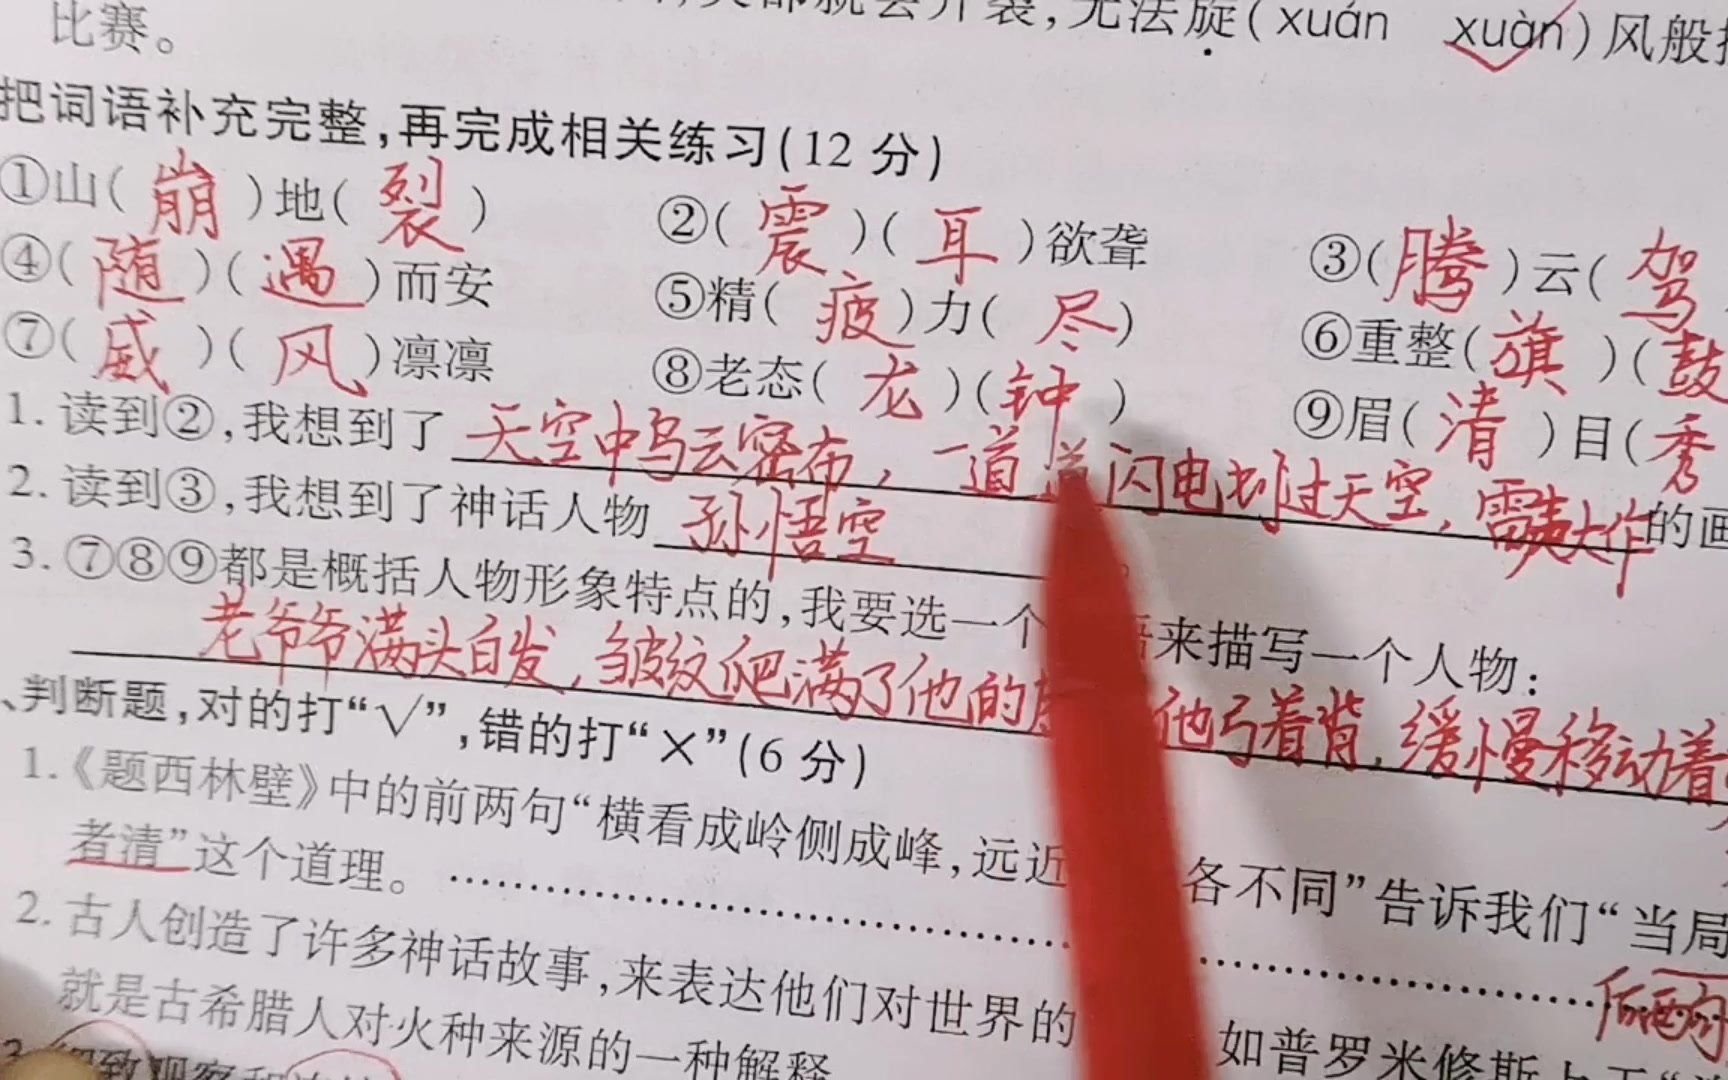 就会开裂,无法旋(xuán xuàn)风般
比赛。
把词语补充完整,再完成相关练习(12 分)
①山(崩)地(裂) ②(震)(耳)欲聋 ③(腾)云(驾
④(随)(遇)而安 ⑤精(疲)力(尽) ⑥重整(旗)(鼓
⑦(威)(风)凛凛 ⑧老态(龙)(钟) ⑨眉(清)目(秀
1. 读到②,我想到了 天空中乌云密布,一道道闪电划过天空,雷声大作 的画
2. 读到③,我想到了神话人物 孙悟空 。
3. ⑦⑧⑨都是概括人物形象特点的,我要选一个 语来描写一个人物:
老爷爷满头白发,皱纹爬满了他的 他弓着背,缓慢移动着
、判断题,对的打“√”,错的打“×”(6 分)
1.《题西林壁》中的前两句“横看成岭侧成峰,远近 各不同”告诉我们“当局
者清”这个道理。 后两句
2. 古人创造了许多神话故事,来表达他们对世界的 如普罗米修斯
就是古希腊人对火种来源的一种解释